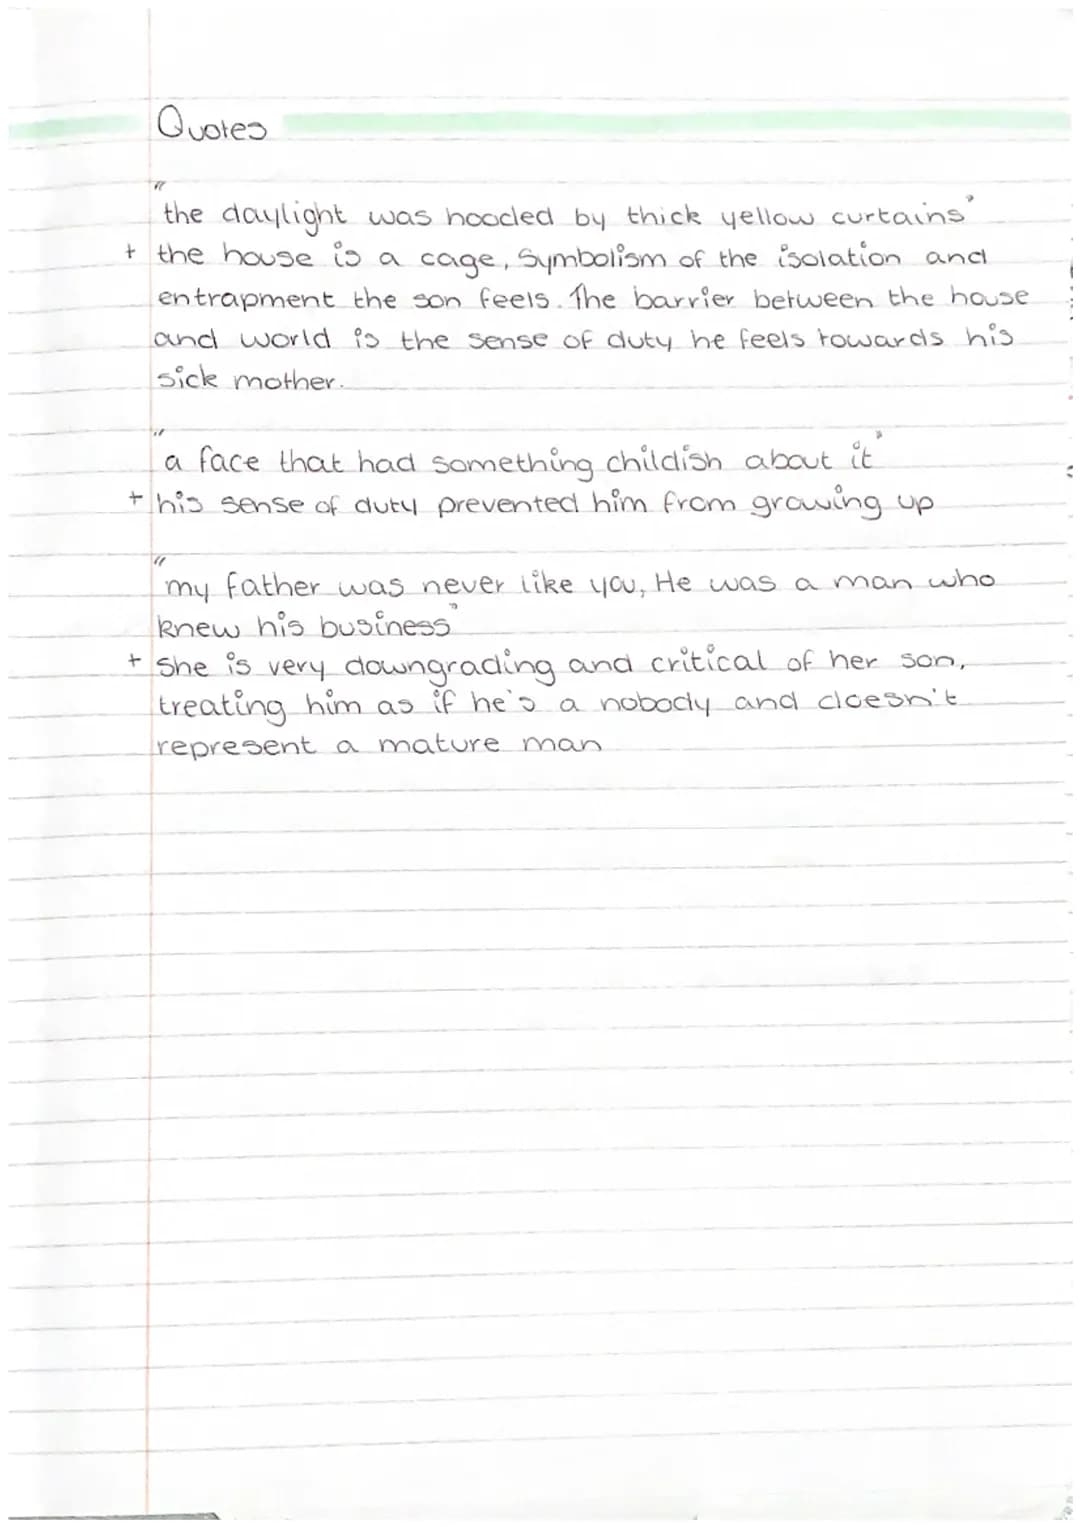 Quotes
"the daylight was hooded by thick yellow curtains"
+ the house is a cage, Symbolism of the isolation and
entrapment the son feels. The barrier between the house
and world is the sense of duty he feels towards his
sick mother.
"a face that had something childish about it"
+ his sense of duty prevented him from growing up
"my father was never like you, He was a man who
knew his business"
+ She is very downgrading and critical of her son,
treating him as if he's a nobody and doesn't
represent a mature man